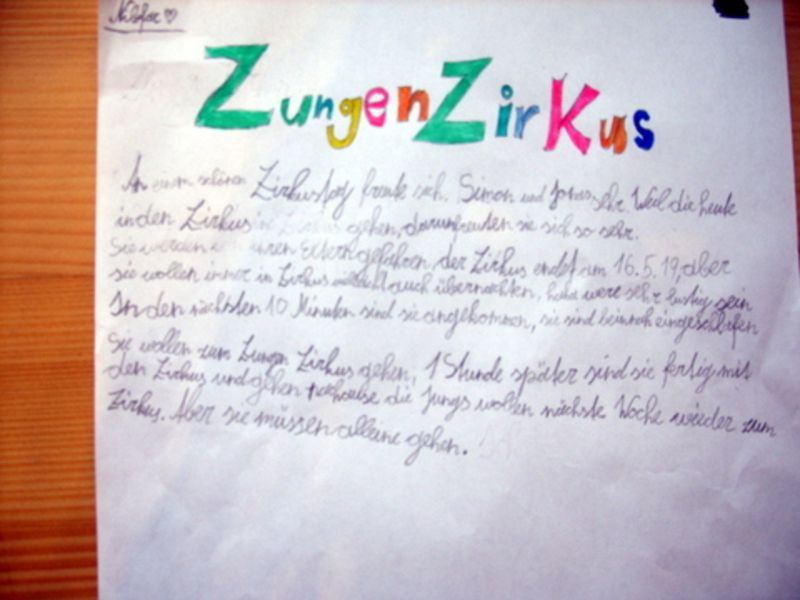 Nilofar
ZungenZirkus
An einem schönen Zirkustag freute sich. Simon und Jonas sehr. Weil die heute
in den Zirkus gehen, darum freuten sie sich so sehr.
Sie werden von ihren Eltern gefahren, der Zirkus endet am 16.5.19, aber
sie wollen immer in Zirkus vielleicht auch übernachten, were sehr lustig sein
In den nächsten 10 Minuten sind sie angekommen, sie sind beinnah eingeschlafen
sie wollen zum Zungen Zirkus gehen, 1 Stunde später sind sie fertig mit
den Zirkus und gehen nachause die Jungs wollen nächste Woche wieder zum
Zirkus. Aber sie müssen alleine gehen.